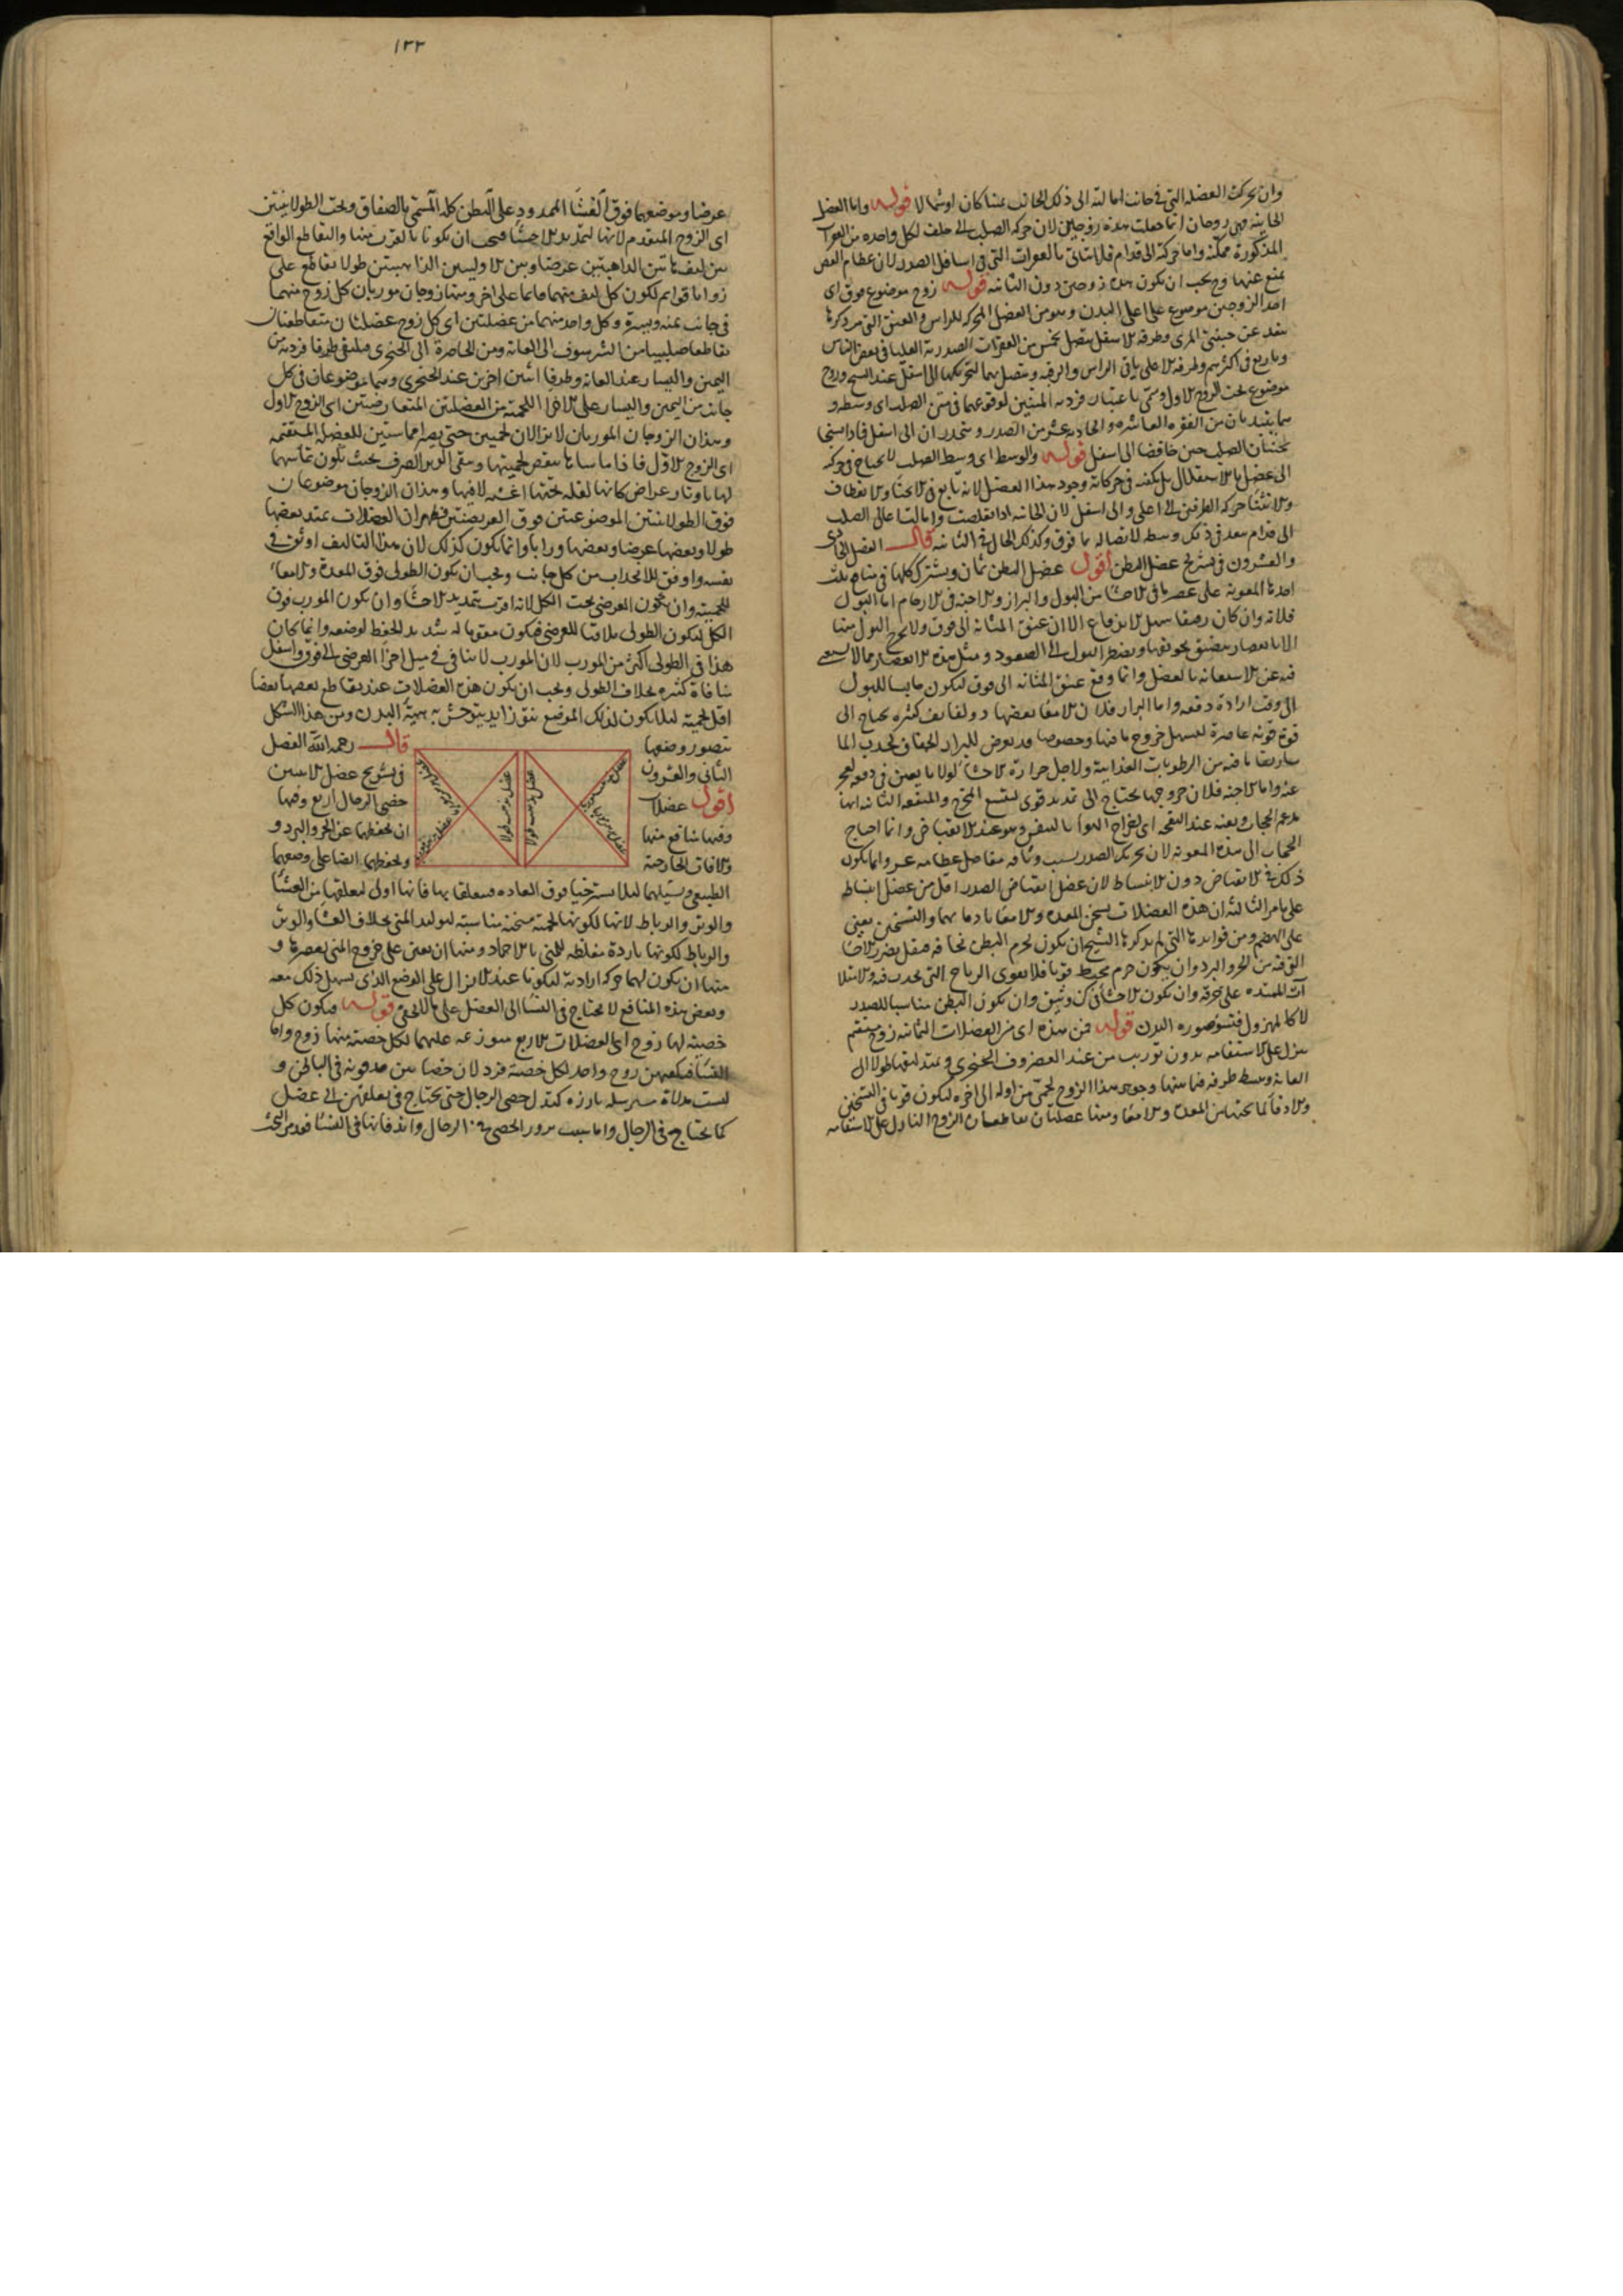 وان تحركت العضلة التي في جانب امالته الى ذلك الجانب يمينا كان او شمالا قوله واما العضل
الحانية فهي زوجان انما جعلت هذه زوجين لان حركة الصلب الى خلف لكل واحدة من الفقرات
المذكورة ممكنة واما حركته الى قدام فلا يتاتى بالفقرات التي في اسافل الصدر لان عظام القص
تمنع عنها وح يجب ان يكون هذه زوجين دون الثانية قوله زوج موضوع فوق اى
احد الزوجين موضوع على اعلى البدن وهو من العضل المحركة للراس والعنق التي مر ذكرها
ينفد عن جنبتى المرى وطرفه الاسفل يتصل بخمس من الفقرات الصدرية العليا في بعض الناس
وباربع في اكثرهم وطرفه الاعلى ياتى الراس والرقبة ويتصل بهما لتحريكهما الى اسفل عند وزوج
موضوع تحت الزوج الاول وسمى باعتبار فرديه المتنين لوقوعهما في متن الصلب اى وسطه و
هما يبتديان من الفقرة العاشرة والحادية عشر من الصدر وينحدران الى اسفل فاذا تشنجا
يحنيان الصلب حنى خافضا الى اسفل قوله والوسط اى وسط الصلب لا يحتاج في حركته
الى عضل بالاستقلال بل يكفيه في حركاته وجود هذا العضل لانه تابع في الانحناء والانعطاف
والانثناء حركة الطرفين الى اعلى والى اسفل لان الحانية اذا تقلصت وامالتا عالى الصلب
الى قدام معه في ذلك وسطه لاتصاله بما فوق وكذلك الحال في الثانية قال الفصل الحادى
والعشرون في تشريح عضل البطن اقول عضل البطن ثمان ويشترك كلها في منافع ثلث
احدها المعونة على عصر ما في الاحشاء من البول والبراز والاجنة في الارحام اما البول
فلانه وان كان رقيقا سهل الاندفاع الا ان عنق المثانة الى فوق ولا يخرج البول منها
الا بانعصار يضيق تجويفها ويضطر البول الى الصعود ومثل هذه الانعصار مما لا يستغنى
فيه عن الاستعانة بالعضل وانما وقع عنق المثانة الى فوق ليكون حابسا للبول
الى وقت ارادة دفعه واما البراز فلان الامعاء بعضها ذو لفائف كثيرة يحتاج الى
قوة قوية عاصرة ليسهل خروج ما فيها وخصوصا وقد يعرض للبراز الجفاف لجذب الما
ساريقا ما فيه من الرطوبات الغذائية ولاجل حرارة الاحشاء لولا ما يعين في دفعه لعجز
عنه واما الاجنة فلان خروجها يحتاج الى تمديد قوى ليتسع المخرج والمنفعة الثانية انها
تدعم الحجاب وتعينه عند النفخة اى لاخراج الهواء بالنفس وهو عند الانقباض وانما احتاج
الحجاب الى هذه المعونة لان تحريك الصدر بسبب وثاقة مفاصل عظامه عسر وانما يكون
ذلك في الانقباض دون الانبساط لان عضل انقباض الصدر اقل من عضل انبساطه
على ما مر الثالثة ان هذه العضلات يسخن المعدة والامعاء بادفائها والتسخين يعين
على الهضم ومن فوايدها التي لم يذكرها الشيخ ان يكون لجرم البطن ثخانة فيقل تضرر الاحشاء
القوية من الحر والبرد وان يكون جرم محيط قويا فلا يقوى الرياح التي تحدث فيه والامتلا
آت الممتدة على خرقه وان يكون الاحشاء في كن وثيق وان يكون البطن مناسبا للصدر
لا كالمهزول فتتشوه صورة البدن قوله فمن هذه اى من العضلات الثمانية زوج مستقيم
ينزل على الاستقامة بدون توريب من عند الغضروف الخنجرى ويمتد ليفها طولا الى
العانة وينبسط طرفه فيما يليها وجوهر هذا الزوج لحمى من اوله الى اخره ليكون قويا في التسخين
والادفاء لما تحتها من المعدة والامعاء ومنها عضلتان تقاطعان الزوج النازل على الاستقامة
١٣٣
عرضا وموضعهما فوق الغشاء الممدود على البطن كله المسمى بالصفاق وتحت الطولانيتين
اى الزوج المتقدم لانها لتمديد الاحشاء فيجب ان يكونا بالقرب منها والتقاطع الواقع
بين ليف هاتين الذاهبتين عرضا وبين الاوليين الذاهبتين طولا تقاطع على
زوايا قوايم لكون كل ليف منهما قائما على اخر ومنها زوجان موربان كل زوج منهما
في جانب يمنة ويسرة وكل واحد منهما من عضلتين اى كل زوج عضلتان متقاطعتان
تقاطعا صليبيا من الشرسوف الى العانة ومن الخاصرة الى الخنجرى فيلتقى طرفا فرديه من
اليمين واليسار عند العانة وطرفا اثنين اخرين عند الخنجرى وهما موضوعان في كل
جانب من اليمين واليسار على الاجزاء اللحمية من العضلتين المتعارضتين اى الزوج الاول
وهذان الزوجان الموربان لا يزالان لحميين حتى يصيرا مماستين للعضلة المستقيمة
اى الزوج الاول فاذا ماساها ينقص لحميتها ويبقى الوتر الصرف بحيث يكون تماسهما
لها باوتار عراض كانها لقلة ثخنها اغشية لا فيها وهذان الزوجان موضوعان
فوق الطولانيتين الموضوعتين فوق العريضتين فظهر ان العضلات يمتد بعضها
طولا وبعضها عرضا وبعضها ورابا وانما يكون كذلك لان هذا التاليف اوثق في
نفسه واوفق للانجذاب من كل جانب ويجب ان يكون الطولى فوق المعدة والامعاء
للحميته وان يكون العرضى تحت الكل لانه اقرب بتمديد الاحشاء وان يكون المورب فوق
الكل ليكون الطولى ملاقيا للعرضى فيكون مقويا له شديد الحفظ لوضعه وانما كان
هذا في الطولى اكثر من المورب لان المورب لا ينافى في ميل اجزاء العرضى الى فوق واسفل
منافاة كثيرة بخلاف الطولى ويجب ان يكون هذه العضلات عند تقاطع بعضها بعضا
اقل لحمية لئلا يكون لذلك الموضع نتوء زايد يتوحش به هيئة البدن ومن هذا الشكل
يتصور وضعها قال رحمه الله الفصل
الثانى والعشرون في تشريح عضل الانثيين
اقول عضلات خصى الرجال اربع وفيها
وفيها منافع منها ان يحفظها عن الحر والبرد و
والافات الخارجة ويحفظها ايضا على وضعها
الطبيعى ويشيلها لئلا تسترخيا فوق العادة فيتعلقا بها فانها اولى لتعلقها من الغشاء
والوتر والرباط لانها لكونها لحمية مسخنة مناسبة لتوليد المنى بخلاف الغشاء والوتر
والرباط لكونها باردة مغلظة للمنى بالاجماد ومنها ان يعين على خروج المنى بعصرها و
منها ان يكون لها حركة ارادية ليكونا عند الانزال على الوضع الذى يسهل ذلك معه
وبعض هذه المنافع لا يحتاج في النساء الى العضل على ما لا يخفى قوله فيكون كل
خصية لها زوج اى العضلات الاربع موزعة عليهما لكل خصية منها زوج واما
النساء فيكفيهن زوج واحد لكل خصية فرد لان خصاهن مدفونة في الباطن و
ليست مدلاة مترسلة بارزة كتدلى خصى الرجال حتى يحتاج في تعلقهن الى عضل
كما يحتاج في الرجال واما سبب بروز الخصى في الرجال واندفانها في النساء فقد مر البحث